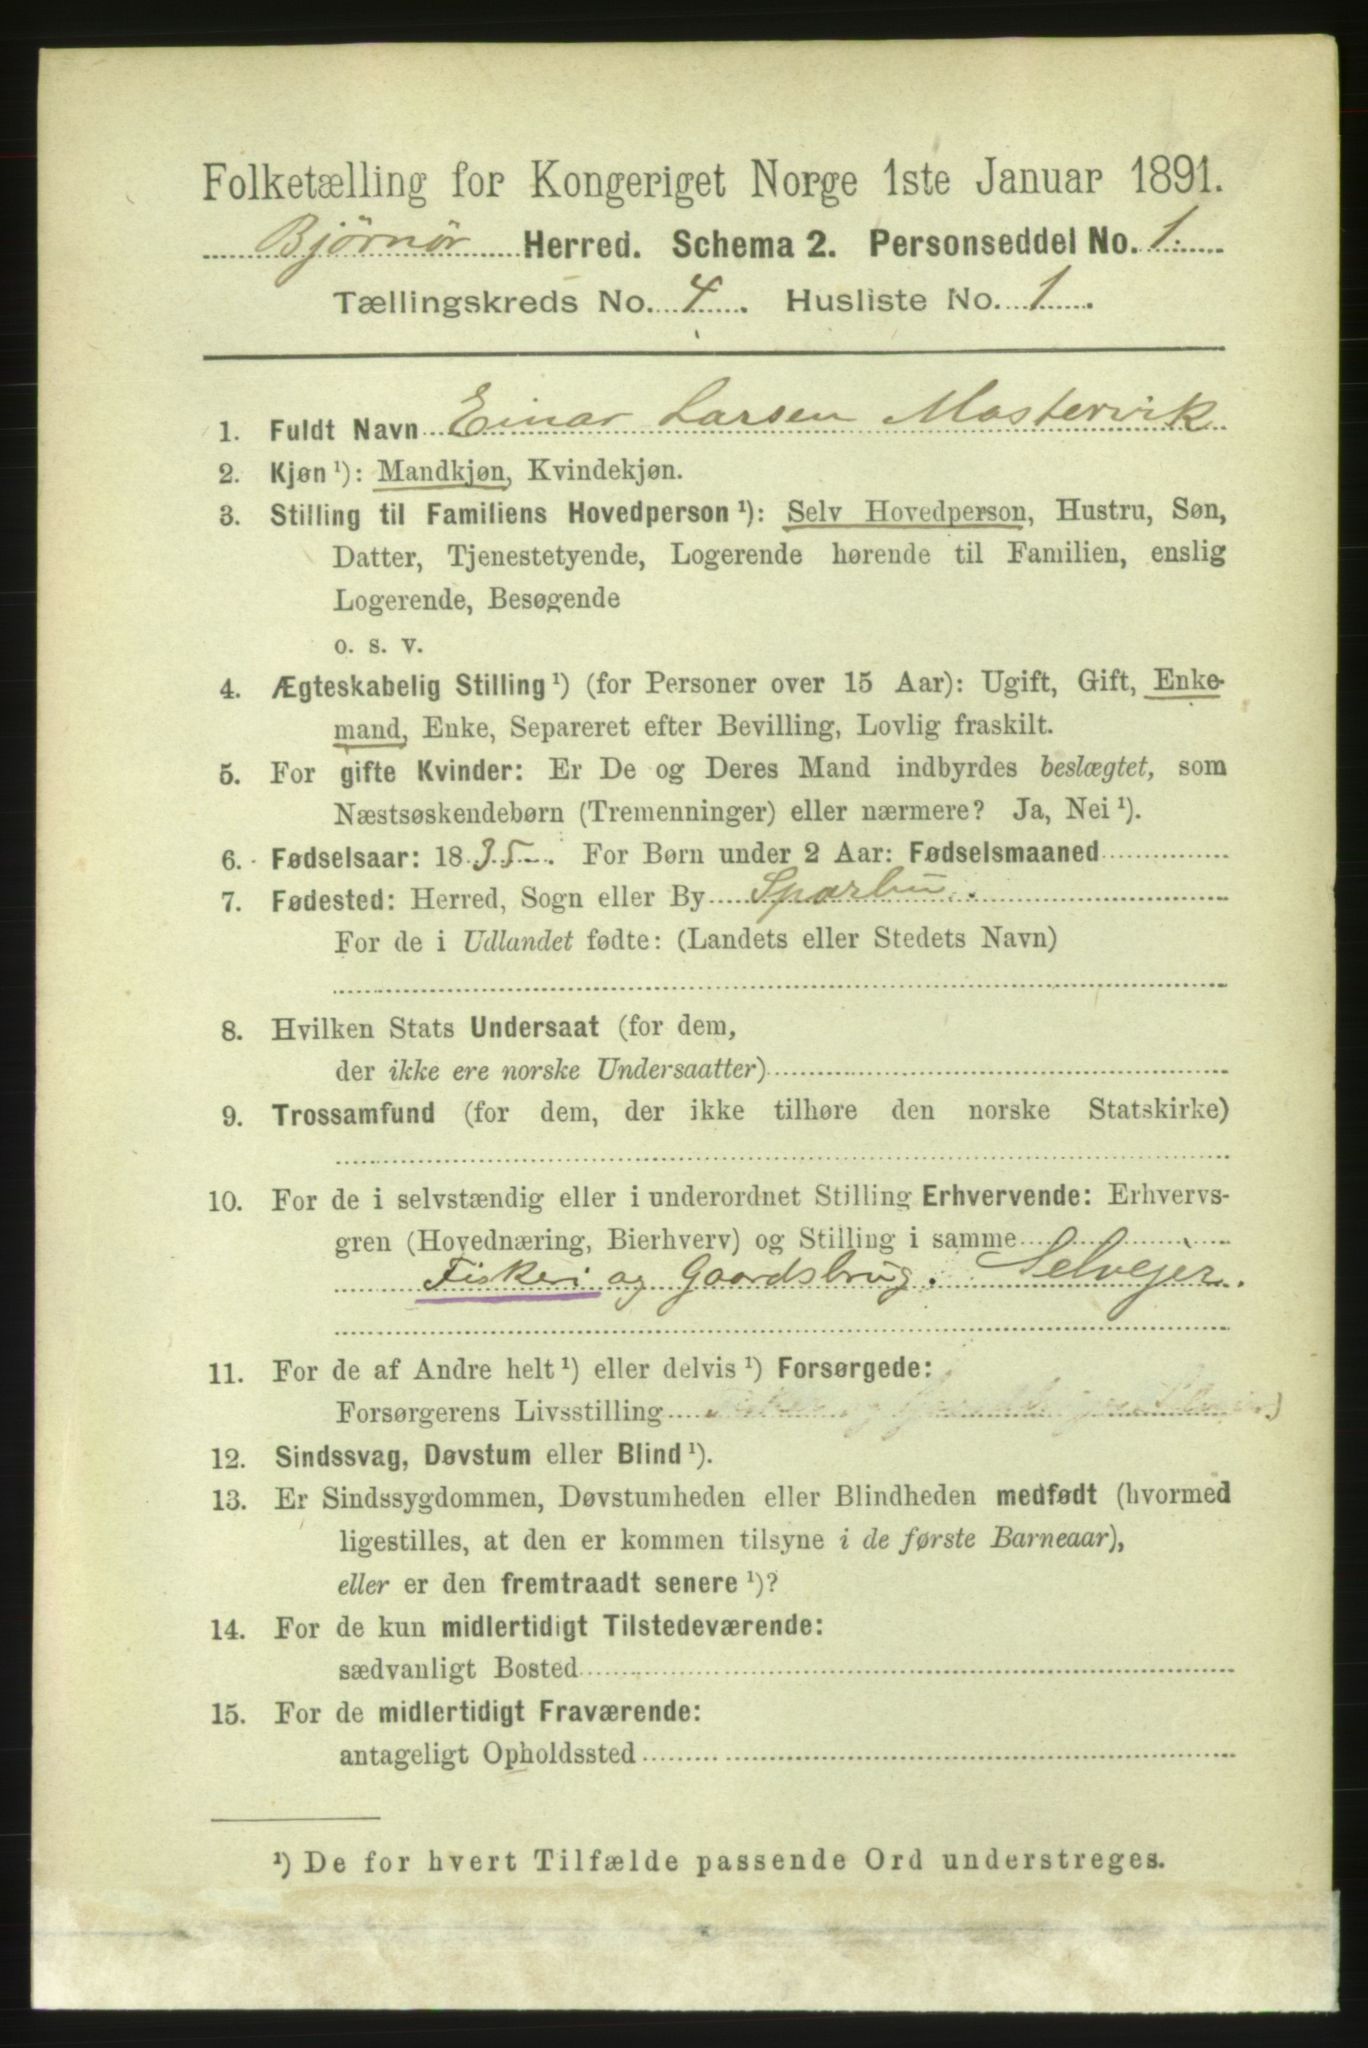 Folketælling for Kongeriget Norge 1ste Januar 1891.
Bjørnør Herred. Schema 2. Personseddel No. 1.
Tællingskreds No. 4. Husliste No. 1.
1. Fuldt Navn Einar Larsen Mastervik
2. Kjøn ¹): Mandkjøn, Kvindekjøn.
3. Stilling til Familiens Hovedperson ¹): Selv Hovedperson, Hustru, Søn,
Datter, Tjenestetyende, Logerende hørende til Familien, enslig
Logerende, Besøgende
o. s. v.
4. Ægteskabelig Stilling ¹) (for Personer over 15 Aar): Ugift, Gift, Enke-
mand, Enke, Separeret efter Bevilling, Lovlig fraskilt.
5. For gifte Kvinder: Er De og Deres Mand indbyrdes beslægtet, som
Næstsøskendebørn (Tremenninger) eller nærmere? Ja, Nei ¹).
6. Fødselsaar: 1835. For Børn under 2 Aar: Fødselsmaaned
7. Fødested: Herred, Sogn eller By Sparbu.
For de i Udlandet fødte: (Landets eller Stedets Navn)
8. Hvilken Stats Undersaat (for dem,
der ikke ere norske Undersaatter)
9. Trossamfund (for dem, der ikke tilhøre den norske Statskirke)
10. For de i selvstændig eller i underordnet Stilling Erhvervende: Erhvervs-
gren (Hovednæring, Bierhverv) og Stilling i samme
Fiskeri og Gaardsbrug. Selvejer.
11. For de af Andre helt ¹) eller delvis ¹) Forsørgede:
Forsørgerens Livsstilling
12. Sindssvag, Døvstum eller Blind ¹).
13. Er Sindssygdommen, Døvstumheden eller Blindheden medfødt (hvormed
ligestilles, at den er kommen tilsyne i de første Barneaar),
eller er den fremtraadt senere ¹)?
14. For de kun midlertidigt Tilstedeværende:
sædvanligt Bosted
15. For de midlertidigt Fraværende:
antageligt Opholdssted
¹) De for hvert Tilfælde passende Ord understreges.